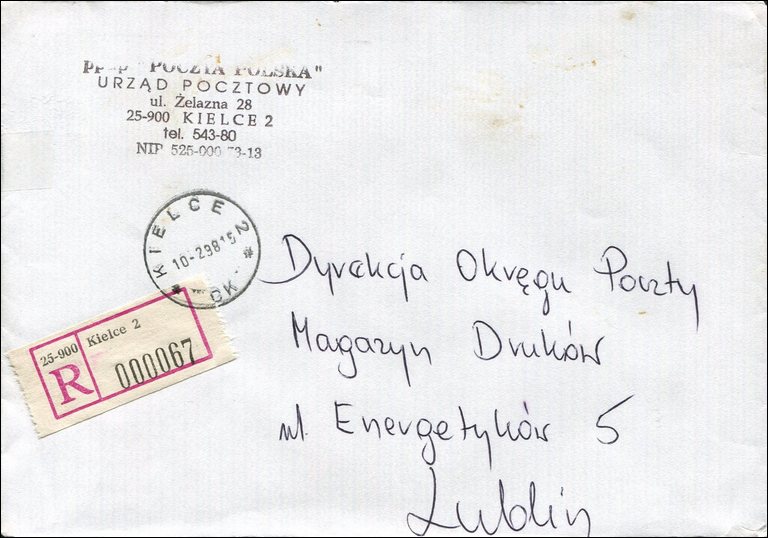 pp "POCZTA POLSKA"
URZĄD POCZTOWY
ul. Żelazna 28
25-900 KIELCE 2
tel. 543-80
NIP 525-000-73-13
KIELCE 2
10-2.98 15
MO
25-900 Kielce 2
R 000067
Dyrekcja Okręgu Poczty
Magazyn Druków
ul. Energetyków 5
Lublin